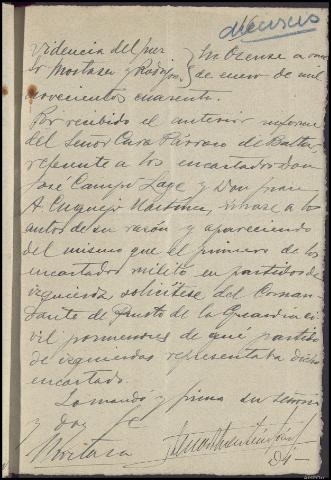 videncia del juez
Sr Mostaza y Rodríguez
En Orense a once
de enero de mil
novecientos cuarenta.
Por recibido el anterior informe
del Señor Cura Párroco de Baltar,
referente a los encartados Don
José Campo Lage y Don Juan
A. Cuquejo Martínez, únase a los
autos de su razón y apareciendo
del mismo que el primero de los
encartados militó en partidos de
izquierda solicítese del Coman-
dante de Puesto de la Guardia ci-
vil pormenores de qué partido
de izquierdas representaba dicho
encartado.
Lo mandó y firma su señoría
y doy fe